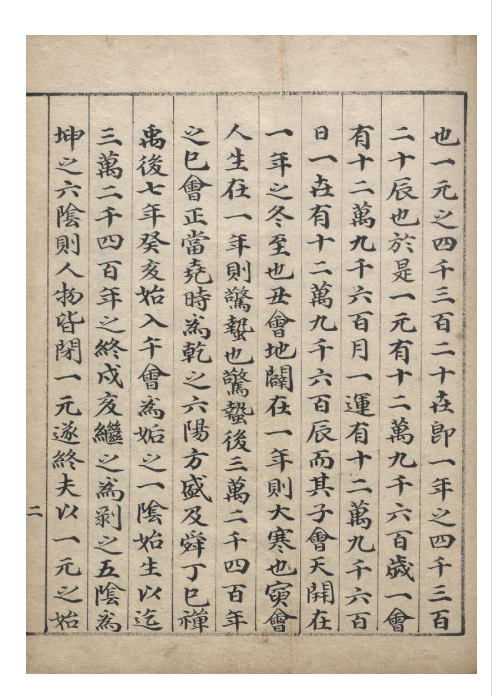 也一元之四千三百二十卋即一年之四千三百
二十辰也於是一元有十二萬九千六百歲一會
有十二萬九千六百月一運有十二萬九千六百
日一卋有十二萬九千六百辰而其子會天開在
一年之冬至也丑會地闢在一年則大寒也寅會
人生在一年則驚蟄也驚蟄後三萬二千四百年
之巳會正當堯時為乾之六陽方盛及舜丁巳禪
禹後七年癸亥始入午會為姤之一陰始生以迄
三萬二千四百年之終戌亥繼之為剝之五陰為
坤之六陰則人物皆閉一元遂終夫以一元之始
二